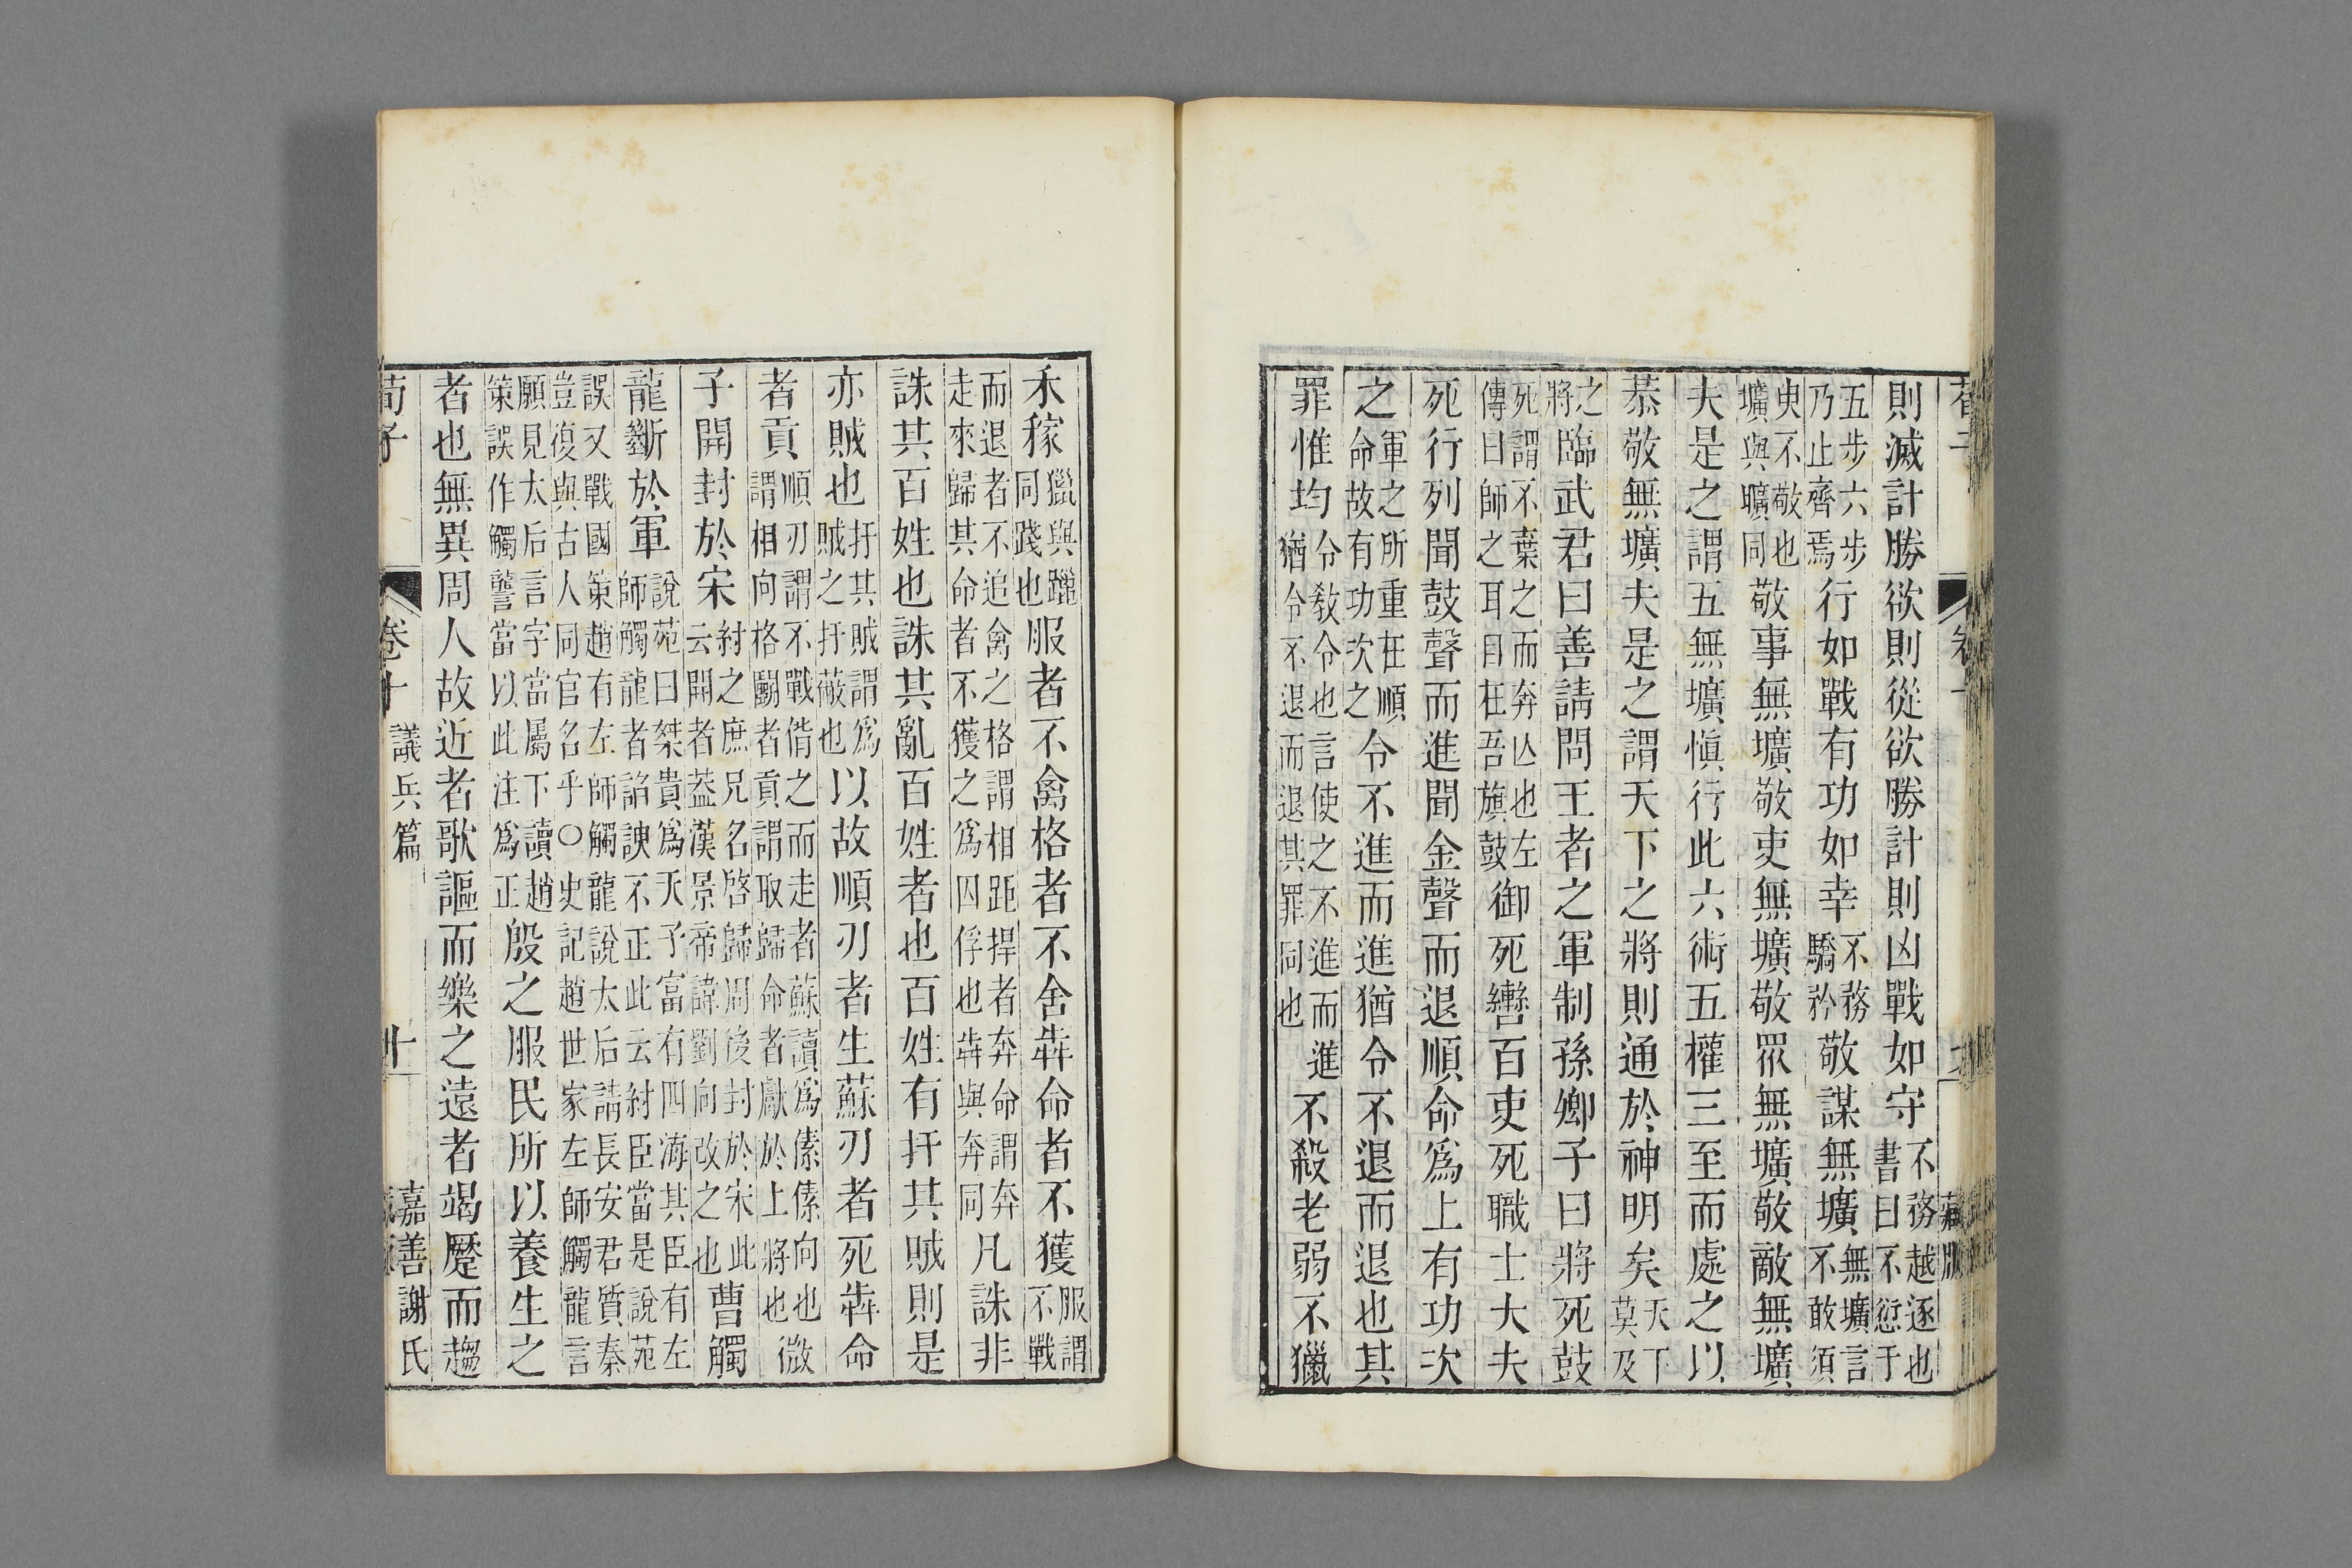 則滅計勝欲則從欲勝計則凶戰如守不務越逐也書曰不愆于
五步六步乃止齊焉行如戰有功如幸不務驕矜敬謀無壙無壙言不敢須
臾不敬也壙與曠同敬事無壙敬吏無壙敬眾無壙敬敵無壙
夫是之謂五無壙愼行此六術五權三至而處之以
恭敬無壙夫是之謂天下之將則通於神明矣天下莫及
之將臨武君曰善請問王者之軍制孫卿子曰將死鼓
死謂不棄之而奔亾也左傳曰師之耳目在吾旗鼓御死轡百吏死職士大夫
死行列聞鼓聲而進聞金聲而退順命爲上有功次
之軍之所重在順命故有功次之令不進而進猶令不退而退也其
罪惟均令敎令也言使之不進而進猶令不退而退其罪同也不殺老弱不獵
禾稼獵與躐同踐也服者不禽格者不舍犇命者不獲服謂不戰
而退者不追禽之格謂相距捍者奔命謂奔走來歸其命者不獲之爲囚俘也犇與奔同凡誅非
誅其百姓也誅其亂百姓者也百姓有扞其賊則是
亦賊也扞其賊謂爲賊之扞蔽也以故順刃者生蘇刃者死犇命
者貢順刃謂不戰偝之而走者蘇讀爲傃傃向也謂相向格鬭者貢謂取歸命者獻於上將也微
子開封於宋紂之庶兄名啓歸周後封於宋此云開者葢漢景帝諱劉向改之也曹觸
龍斷於軍說苑曰桀貴爲天子富有四海其臣有左師觸龍者諂諛不正此云紂臣當是說苑
誤又戰國策趙有左師觸龍說太后請長安君質秦豈復與古人同官名乎○史記趙世家左師觸龍言
願見太后言字當屬下讀趙策誤作觸讋當以此注爲正殷之服民所以養生之
者也無異周人故近者歌謳而樂之遠者竭蹷而趨
荀子 卷十 議兵篇 嘉善謝氏